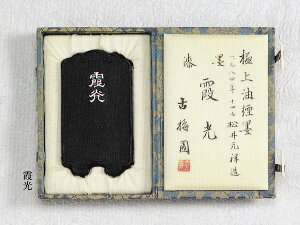 霞光
極上油煙墨
一九八四年 十四世 松井元祥造
漆墨
霞光
古梅園
霞光